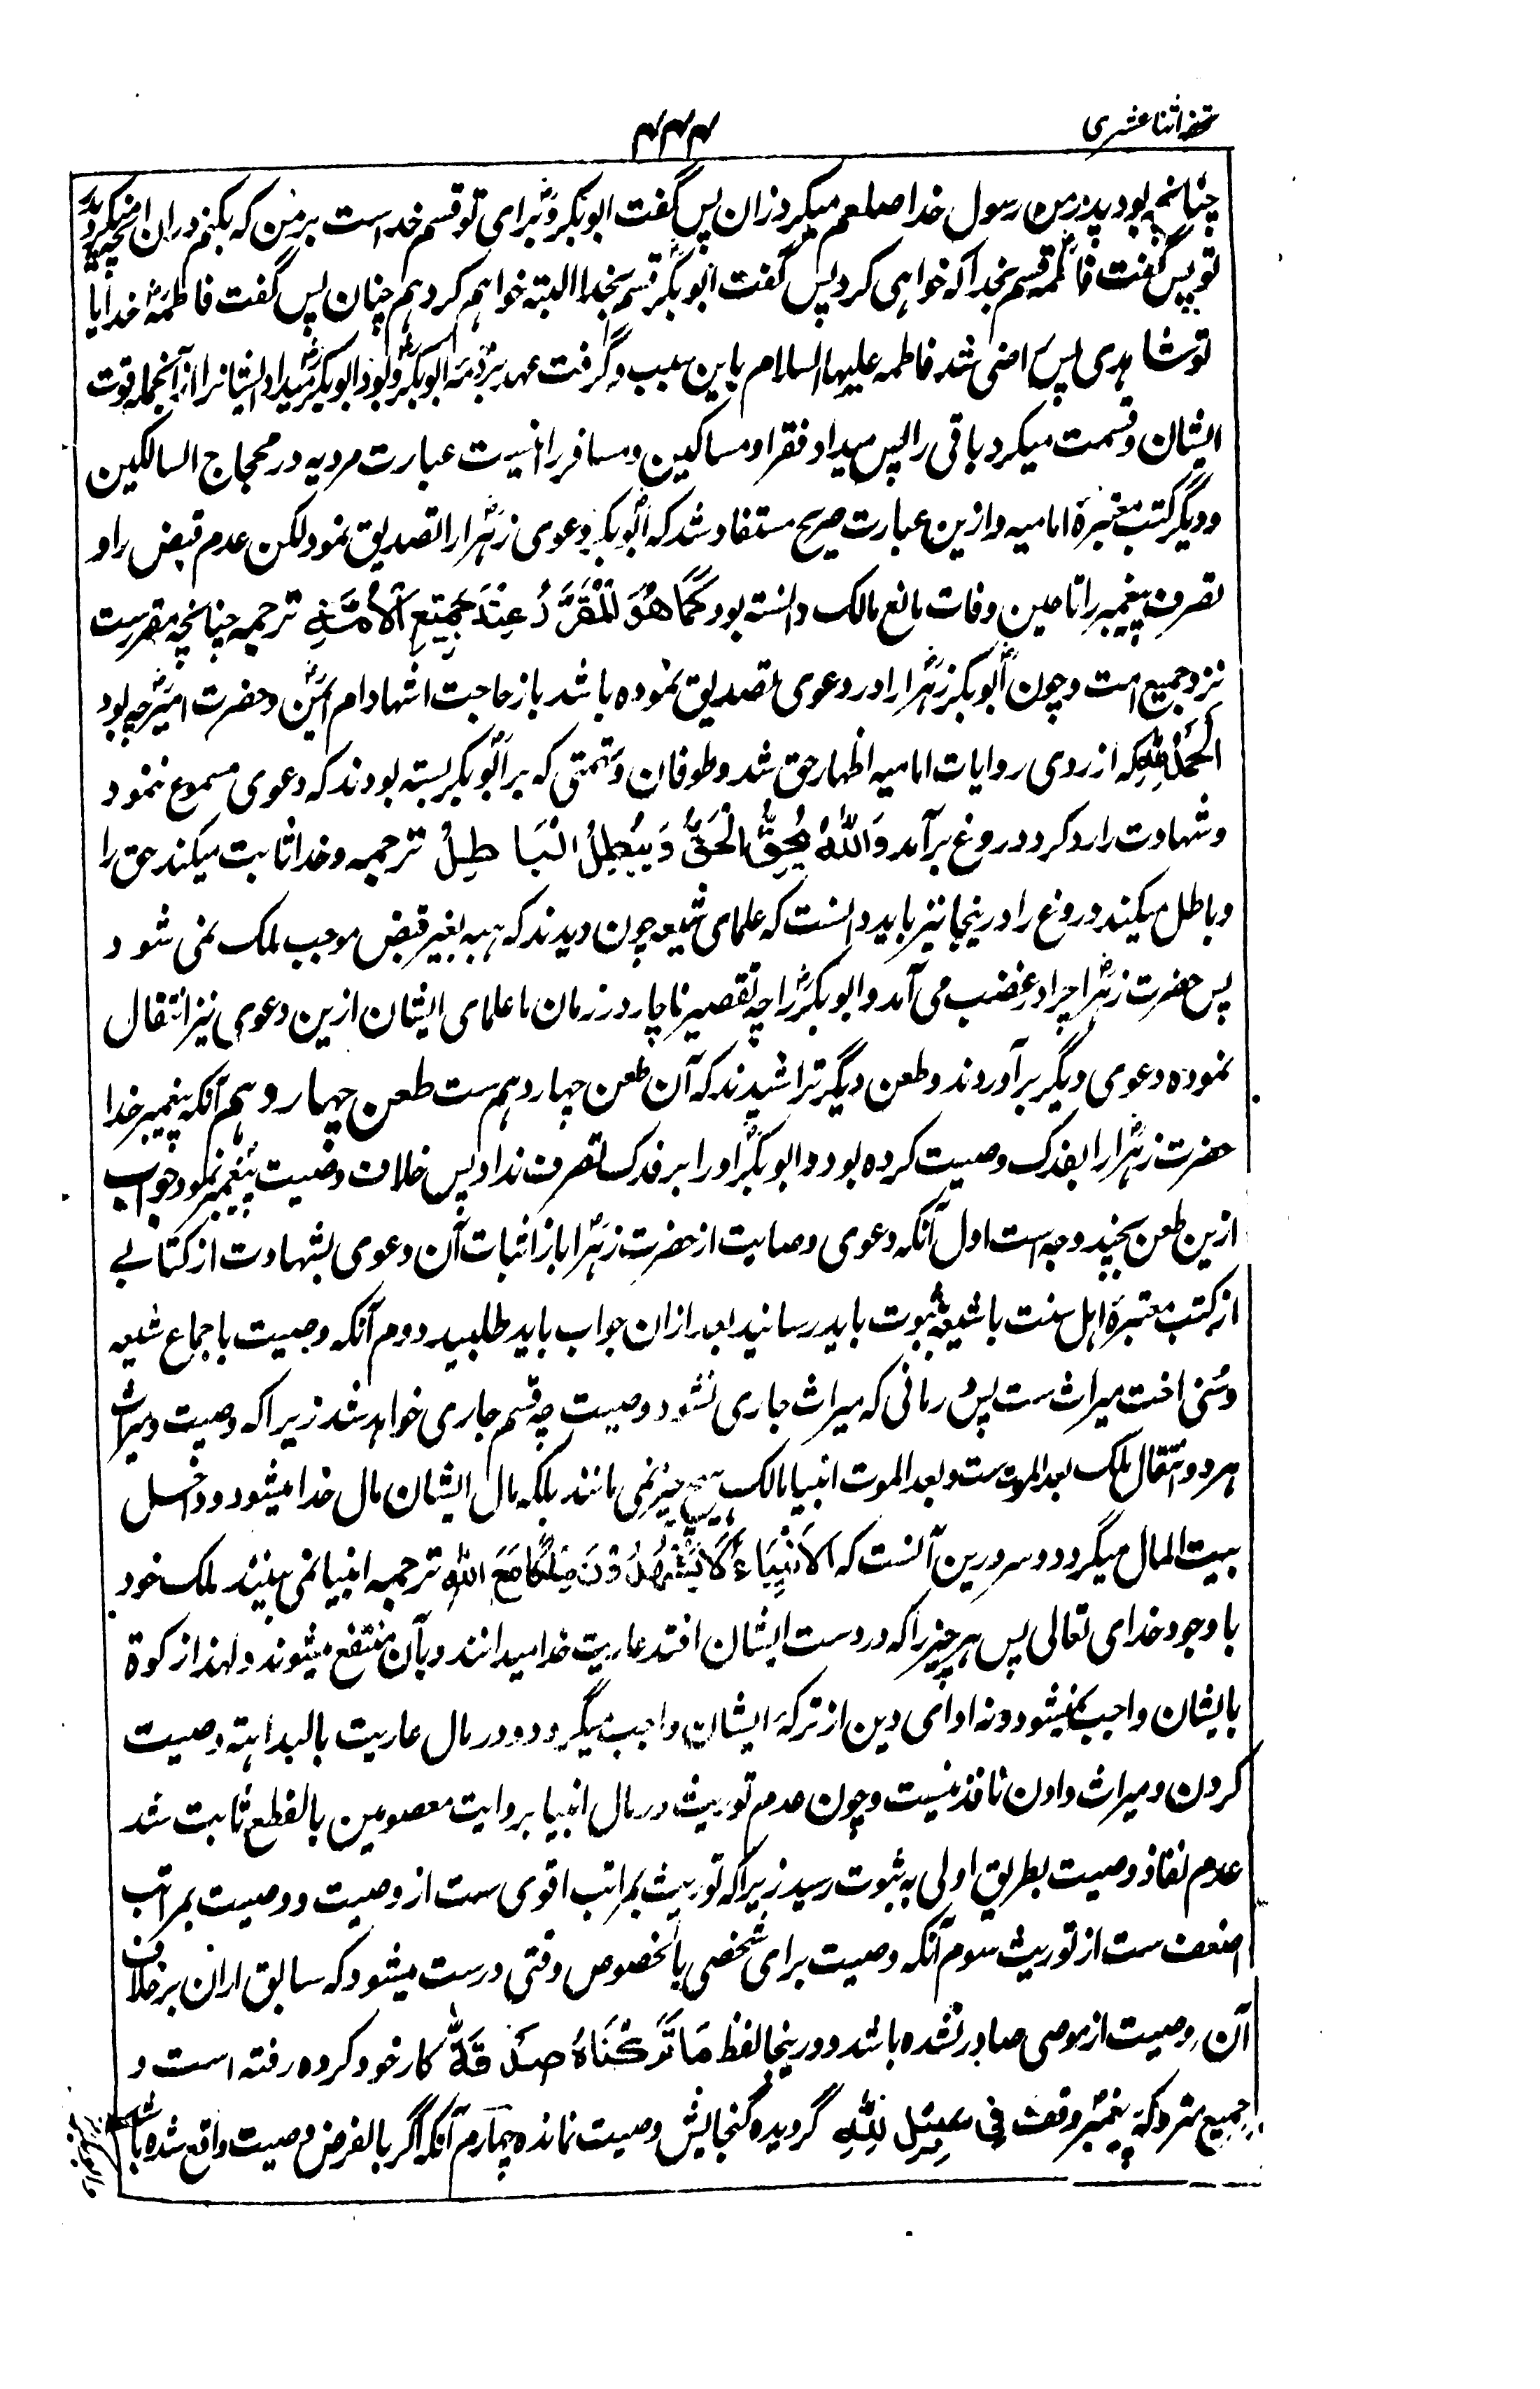 تحفه اثنا عشری
۴۴۴
چنانچه بود پدر من رسول خدا صلعم میکرد زان پس گفت ابوبکرؓ و برای تو قسم خداست بر من که بکنم دران آنچه میکرد پدر
تو پس گفت فاطمهؓ قسم بخدا که خواهی کرد پس گفت ابوبکرؓ قسم بخدا البته خواهم کرد هم چنان پس گفت فاطمهؓ خدایا
تو شاهدی پس راضی شد فاطمه علیها السلام باین سبب و گرفت عهد بر ذمه ابوبکرؓ و بود ابوبکرؓ میداد ایشانرا از آنجمله قوت
ایشان و قسمت میکرد باقی را پس میداد فقرا و مساکین و مسافر را اینست عبارت مرویه در محجاج السالکین
و دیگر کتب معتبرهٔ امامیه و ازین عبارت صریح مستفاد شد که ابوبکرؓ دعوی زهراؓ را تصدیق نمود لکن عدم قبض را و
تصرف پیغمبر را تا حین وفات مانع مالک دانسته بود كَمَا هُوَ المُقَرَّرُ عِنْدَ جَمِيْعِ الْأُمَّةِ ترجمه چنانچه مقررست
نزد جمیع امت و چون ابوبکرؓ زهراؓ را در دعوی تصدیق نموده باشد باز حاجت اشهاد ام ایمنؓ و حضرت امیرؓ چه بود
الحَمْدُ لِلّٰهِ که از روی روایات امامیه اظهار حق شد و طوفان و تهمتی که بر ابوبکرؓ بسته بودند که دعوی مسموع ننمود
و شهادت را رد کرد دروغ برآمد وَاللّٰهُ يُحِقُّ الْحَقَّ وَيُبْطِلُ الْبَاطِلُ ترجمه و خدا ثابت میکند حق را
و باطل میکند دروغ را درینجا نیز باید دانست که علمای شیعه چون دیدند که هبه بغیر قبض موجب ملک نمی شود
پس حضرت زهراؓ چرا در غضب می آمد و ابوبکرؓ را چه تقصیر ناچار در زمان ما علمای ایشان ازین دعوی نیز انتقال
نموده دعوی دیگر برآوردند و طعن دیگر تراشیدند که آن طعن چهاردهم ست طعن چهاردهم آنکه پیغمبر خدا
حضرت زهراؓ را بفدک وصیت کرده بود و ابوبکرؓ او را بر فدک تصرف نداد پس خلاف وصیت پیغمبر نمود جواب
ازین طعن بچند وجه است اول آنکه دعوی وصایت از حضرت زهراؓ باز اثبات آن دعوی بشهادت از کتابے
از کتب معتبرهٔ اهل سنت با شیعه بثبوت باید رسانید بعد ازان جواب باید طلبید دوم آنکه وصیت باجماع شیعه
و سنی اخت میراث ست پس در مالی که میراث جاری نشود وصیت چه قسم جاری خواهد شد زیرا که وصیت و میراث
هر دو انتقال ملک بعد الموت ست و بعد الموت انبیا مالک هیچ چیز نمی مانند بلکه مال ایشان مال خدا میشود و داخل
بیت المال میگردد و سر درین آنست که الاَنْبِيَاءُ لَا يَشْهَدُوْنَ مِلْكًا مَعَ اللّٰهِ ترجمه انبیا نمی بینند ملک خود
با وجود خدای تعالی پس هر چیز را که در دست ایشان افتد عاریت خدا میدانند و بآن منتفع میشوند و لهذا زکوة
بایشان واجب نمیشود و نه ادای دین از ترکهٔ ایشان واجب میگردد و در مال عاریت بالبداهته وصیت
کردن و میراث دادن نافذ نیست و چون عدم توریث در مال انبیا بروایت معصومین بالقطع ثابت شد
عدم نفاذ وصیت بطریق اولی به ثبوت رسید زیرا که توریث بمراتب اقوی ست از وصیت و وصیت بمراتب
اضعف ست از توریث سوم آنکه وصیت برای شخصی بالخصوص وقتی درست میشود که سابق ازان برخلاف
آن وصیت از موصی صادر نشده باشد و درینجا لفظ مَا تَرَكْنَاهُ صَدَقَةٌ کار خود کرده رفته است و
جمیع متروکهٔ پیغمبر وقف فِي سَبِيْلِ لِلّٰهِ گردیده گنجایش وصیت نمانده چهارم آنکه اگر بالفرض وصیت واقع شده باشد